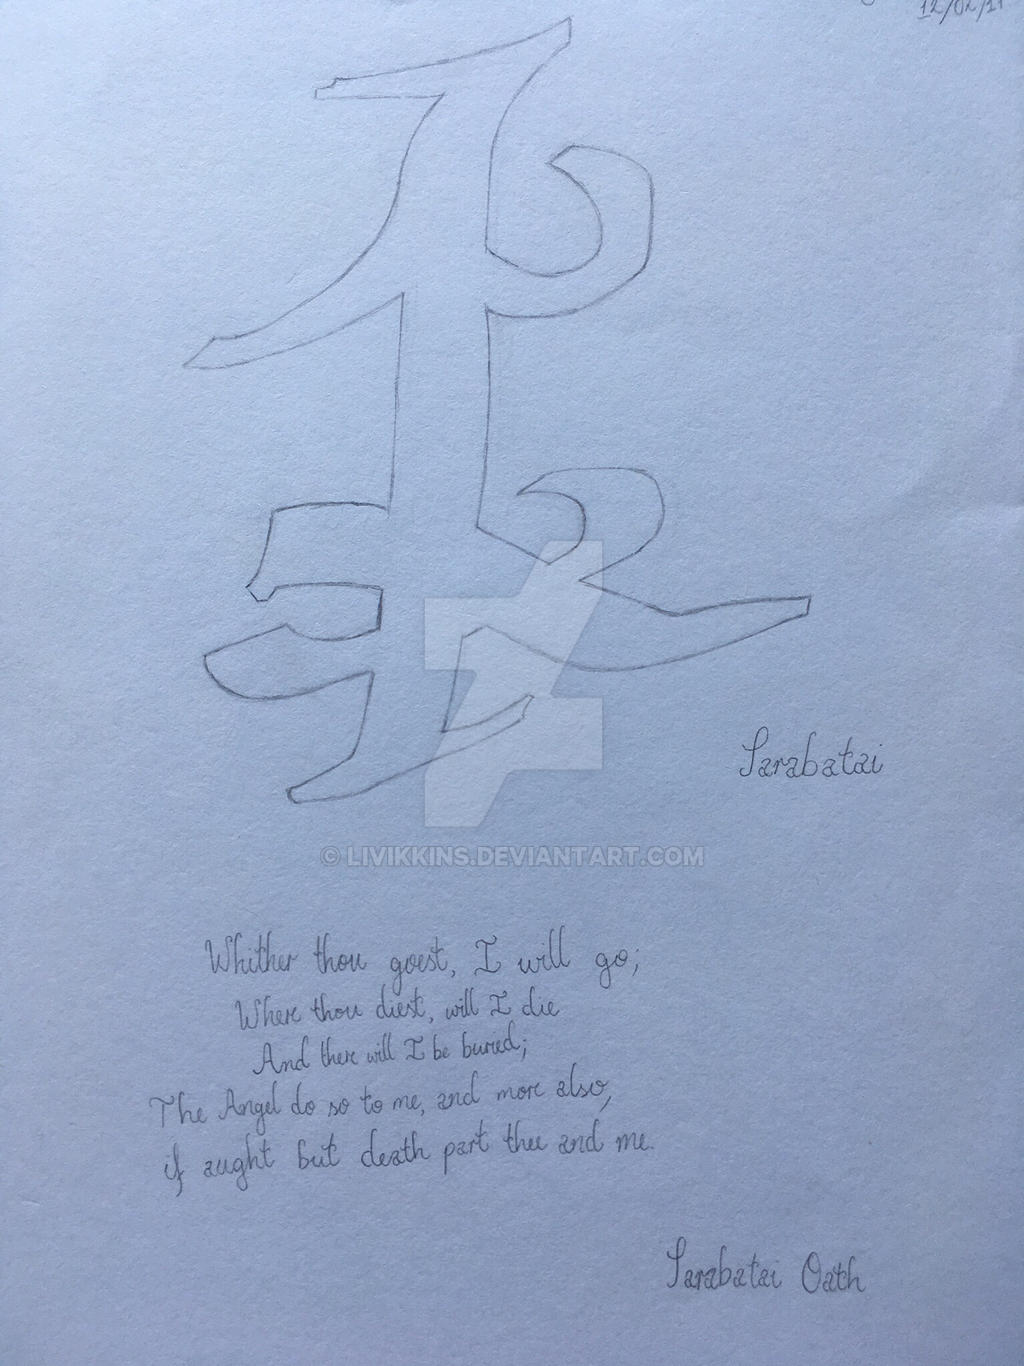 12/02/17
Parabatai
© LIVIKKINS.DEVIANTART.COM
Whither thou goest, I will go;
Where thou diest, will I die
And there will I be buried;
The Angel do so to me, and more also,
if aught but death part thee and me.
Parabatai Oath